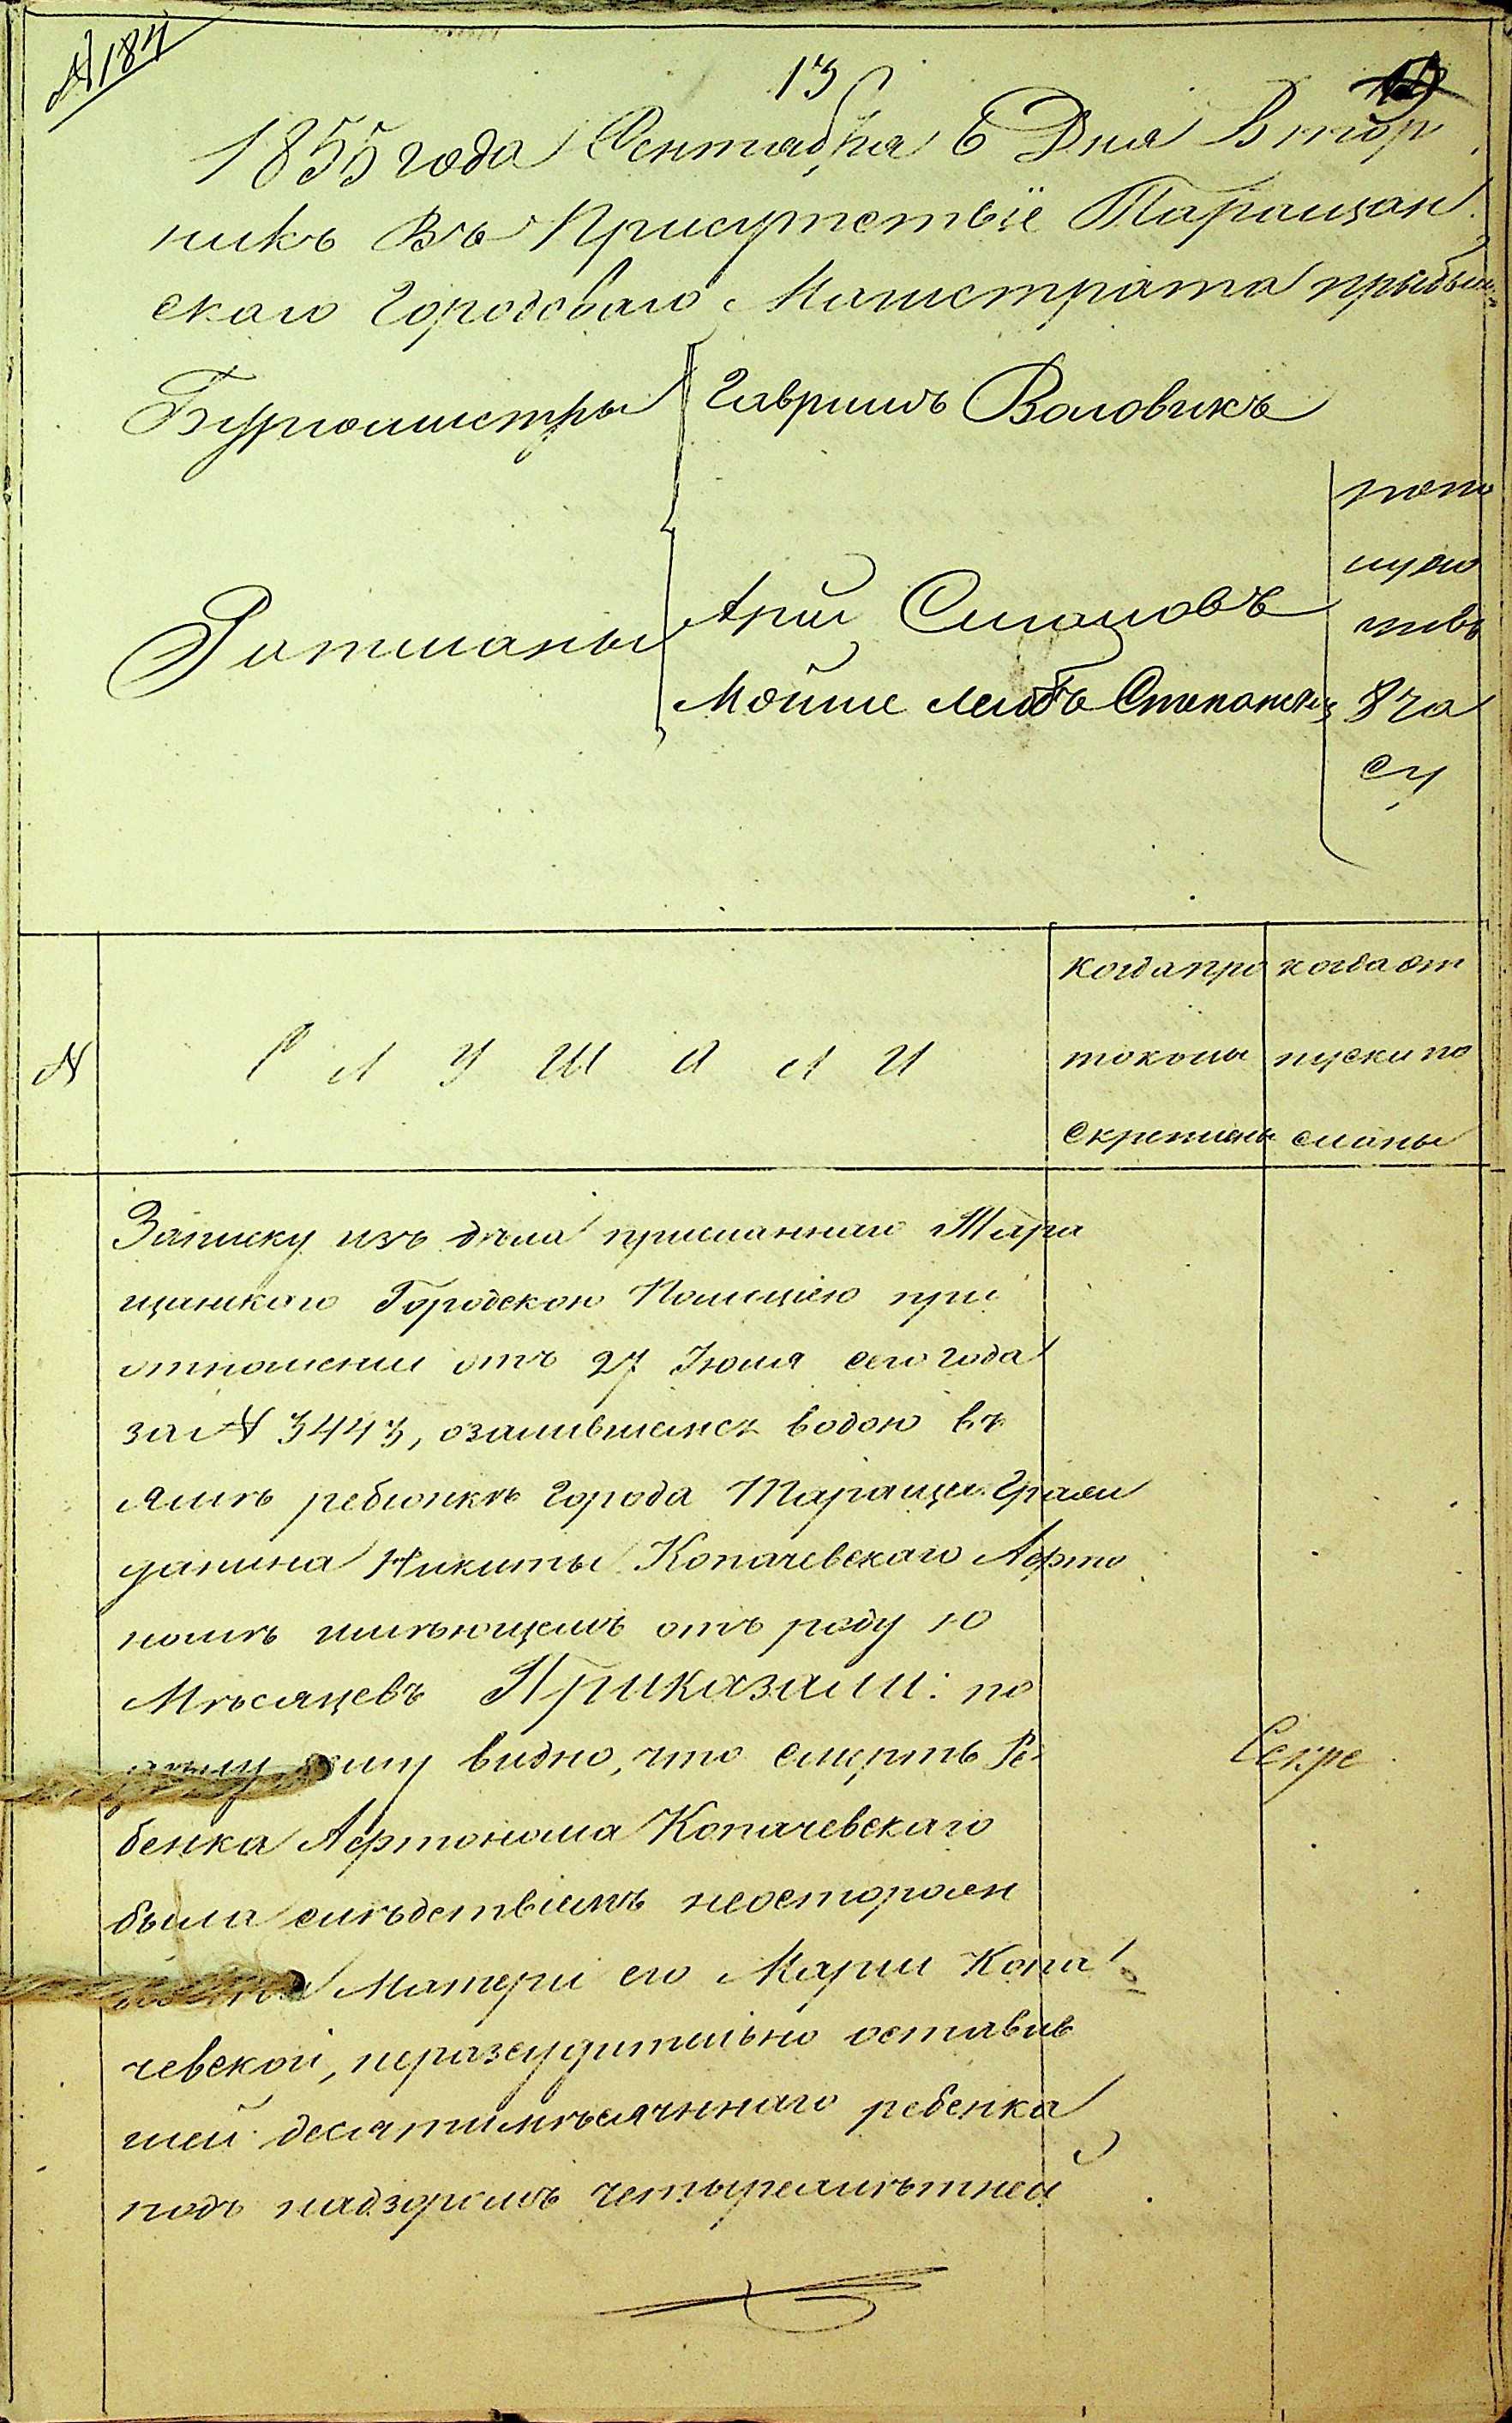 № 184
13
1855 года Сентября 6 Дня Втор
никъ Въ Присутствіе Таращан
скаго Городоваго Магистрата прибыли
Бургомистры Гавриилъ Воловикъ
Ратманы
Мойше Лейбъ
по по
луно
чивъ
8 ча
су
№
СЛУШАЛИ
когда про
токолы
скреплены
когда от
пуски по
сланы
Записку изъ дела присланнаго Тара
щанскаго Городскою Полициею при
отношении отъ 27 Июля сего года
за № 3443, о залившемся водою въ
ямѣ ребюнкѣ города Таращи Граж
данина Никиты Копачевскаго Афто
номѣ имѣющемъ отъ роду 10
Мѣсяцевъ Приказали: по
дѣлу сему видно, что смерть Ре
бенка Афтонома Копачевскаго
была слѣдствіемъ неосторожн
Матери его Марии Копа
чевской, неразсудительно оставив
шей десятимѣсячннаго ребенка
подъ надзоромъ четырелѣтней
Секре